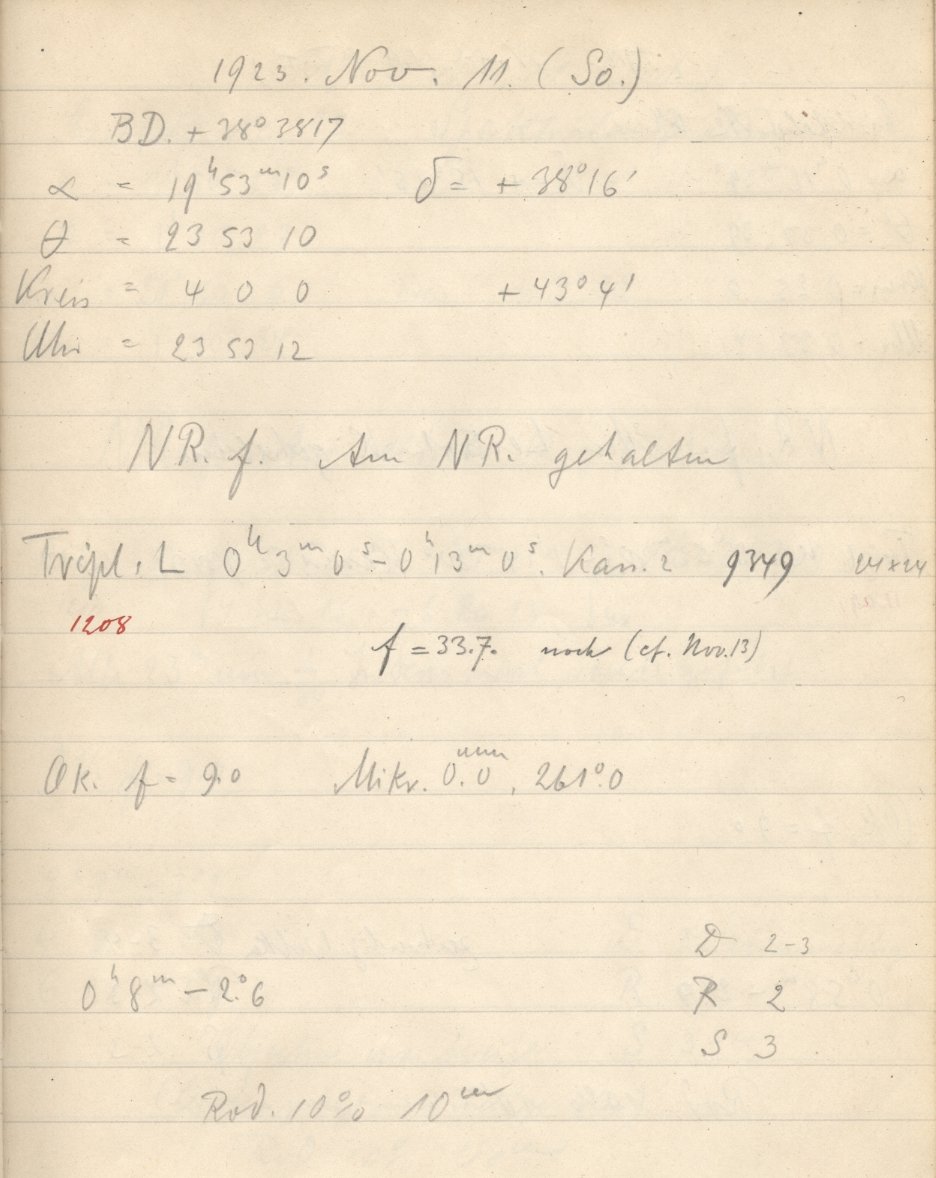 1923. Nov. 11. (So.)
BD. + 38° 3817
α = 19ʰ53ᵐ10ˢ δ = + 38°16′
θ = 23 53 10
Kreis = 4 0 0 + 43°4′
Uhr = 23 53 12
NR. f. Am NR. gehalten
Tripl. L 0ʰ3ᵐ0ˢ – 0ʰ13ᵐ0ˢ. Kass. 2 9349 24×24
1208
f = 33.7. noch (cf. Nov. 13)
Ok. f = 9.0 Mikr. 0.0ᵐᵐ, 261°.0
D 2-3
0ʰ8ᵐ – 2°.6 R 2
S 3
Rod. 10% 10ᵐ